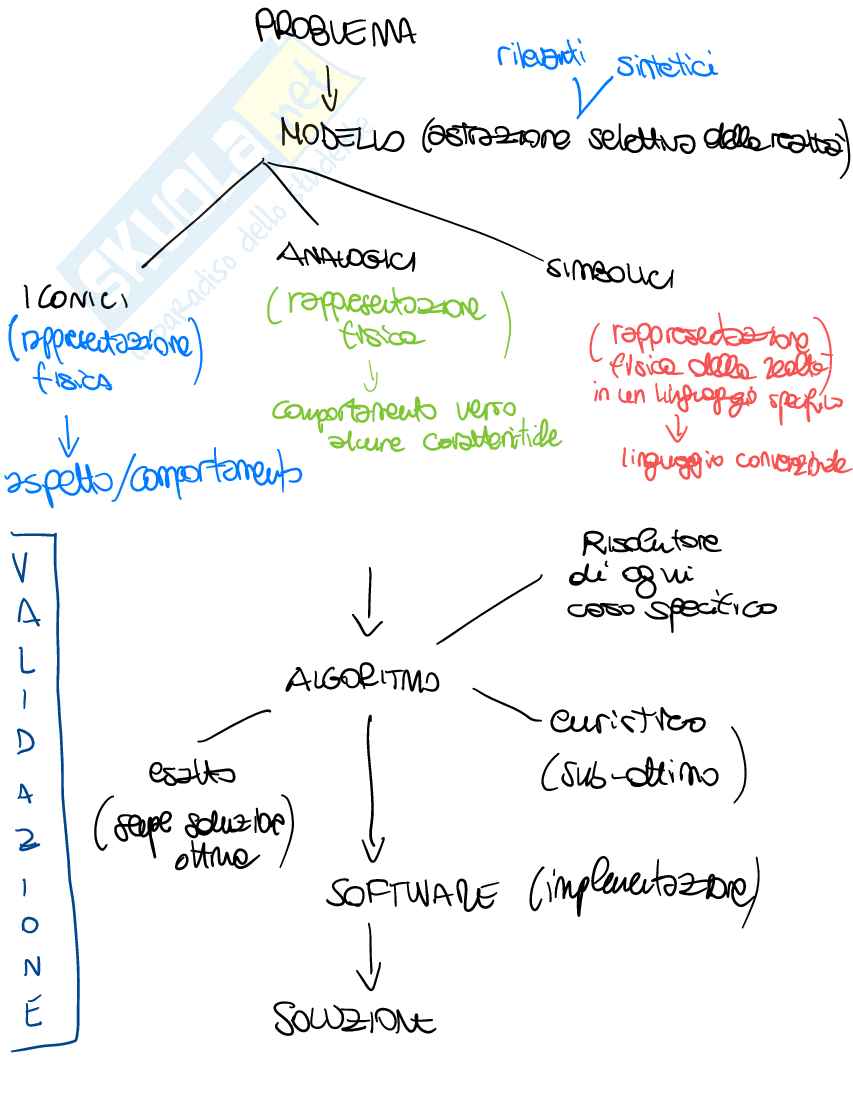 PROBLEMA
rilevanti sintetici
MODELLO (astrazione selettiva della realtà)
ICONICI
(rappresentazione
fisica)
aspetto/comportamento
ANALOGICI
(rappresentazione
fisica)
comportamento verso
alcune caratteristiche
SIMBOLICI
(rappresentazione
fisica della realtà)
in un linguaggio specifico
linguaggio convenzionale
SKUOLA.net
il paradiso dello studente
VALIDAZIONE
Risolutore
di ogni
caso specifico
ALGORITMO
esatto
(sempre soluzione
ottima)
euristico
(sub-ottimo)
SOFTWARE (implementazione)
SOLUZIONE